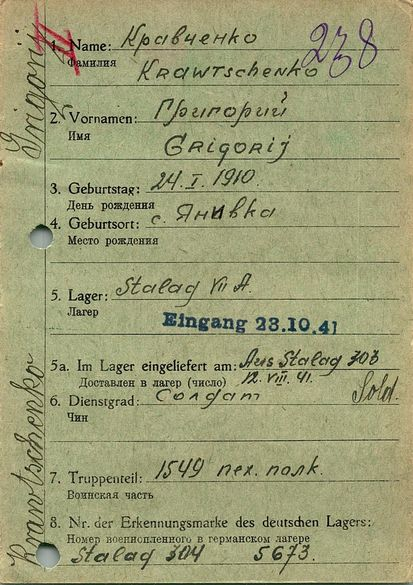 1. Name: Кравченко
Фамилия
Krawtschenko
238
2. Vornamen: Григорий
Имя
Grigorij
3. Geburtstag: 24.I.1910.
День рождения
4. Geburtsort: с. Янивка
Место рождения
5. Lager: Stalag VII A.
Лагерь
Eingang 23.10.41
5a. Im Lager eingeliefert am: Aus Stalag 303
Доставлен в лагерь (число) 12.VIII.41.
6. Dienstgrad: Солдат Sold.
Чин
7. Truppenteil: 1549 пех. полк.
Воинская часть
8. Nr. der Erkennungsmarke des deutschen Lagers:
Номер военнопленного в германском лагере
Stalag 304 5673.
Krawtschenko Grigorij